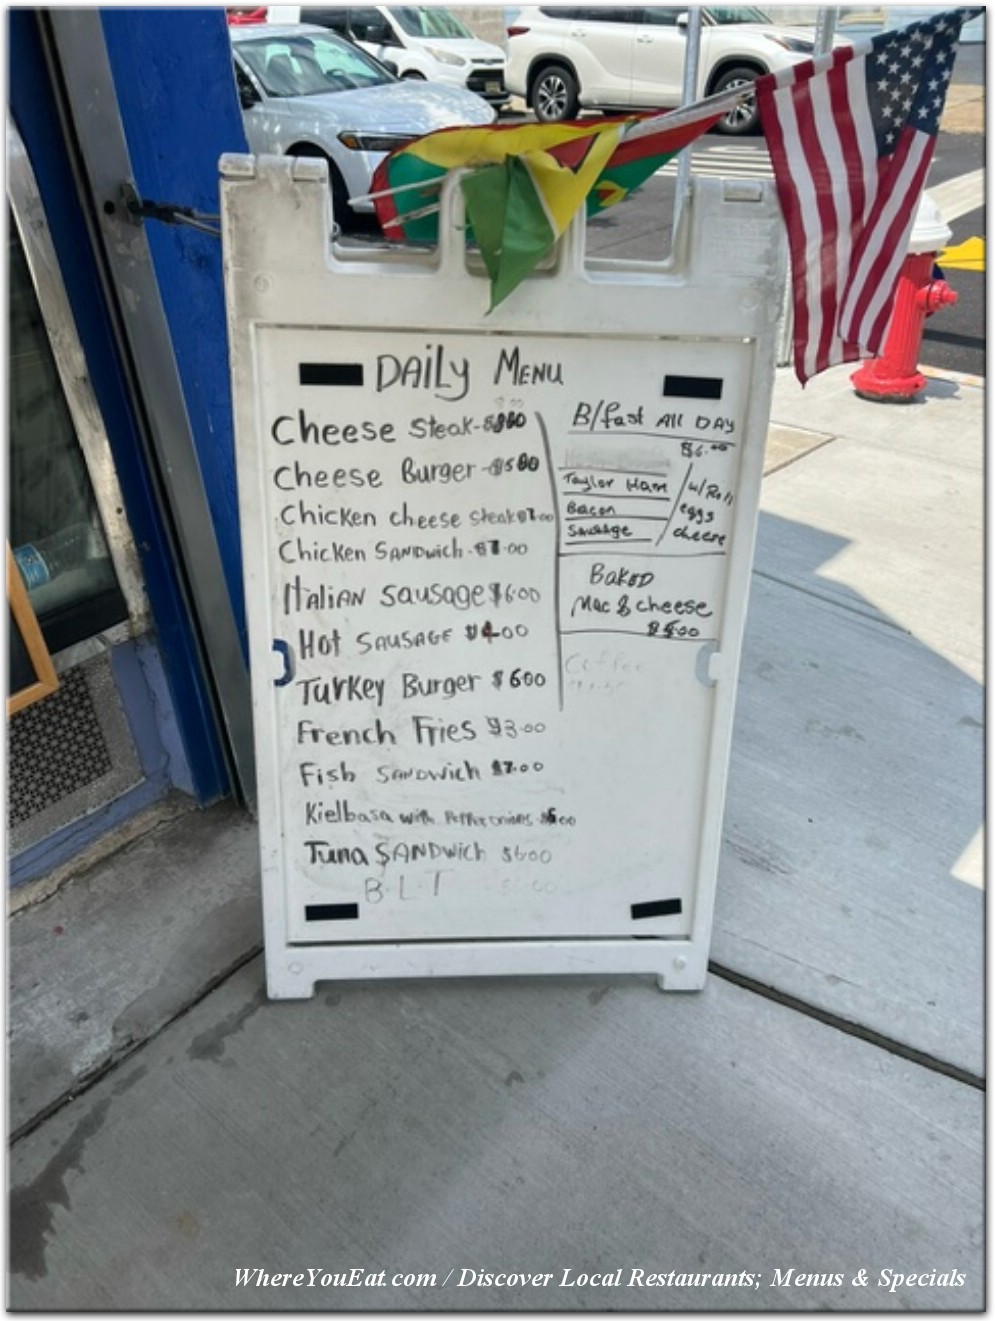 DAiLy MENU
Cheese Steak-
Cheese Burger -
Chicken cheese steak
Chicken SANDwich - $7.00
ITALiAN SAUSAGE $6.00
Hot SAUSAGE $4.00
TuRKey Burger $6.00
French Fries $3.00
Fish SANDWich $7.00
Kielbasa with
Tuna SANDWich $6.00
B.L.T
B/fast All DAY
$6.00
Taylor Ham
Bacon
Sausage
w/Roll
eggs
cheese
BaKED
Mac & cheese
$5.00
Coffee
WhereYouEat.com / Discover Local Restaurants; Menus & Specials